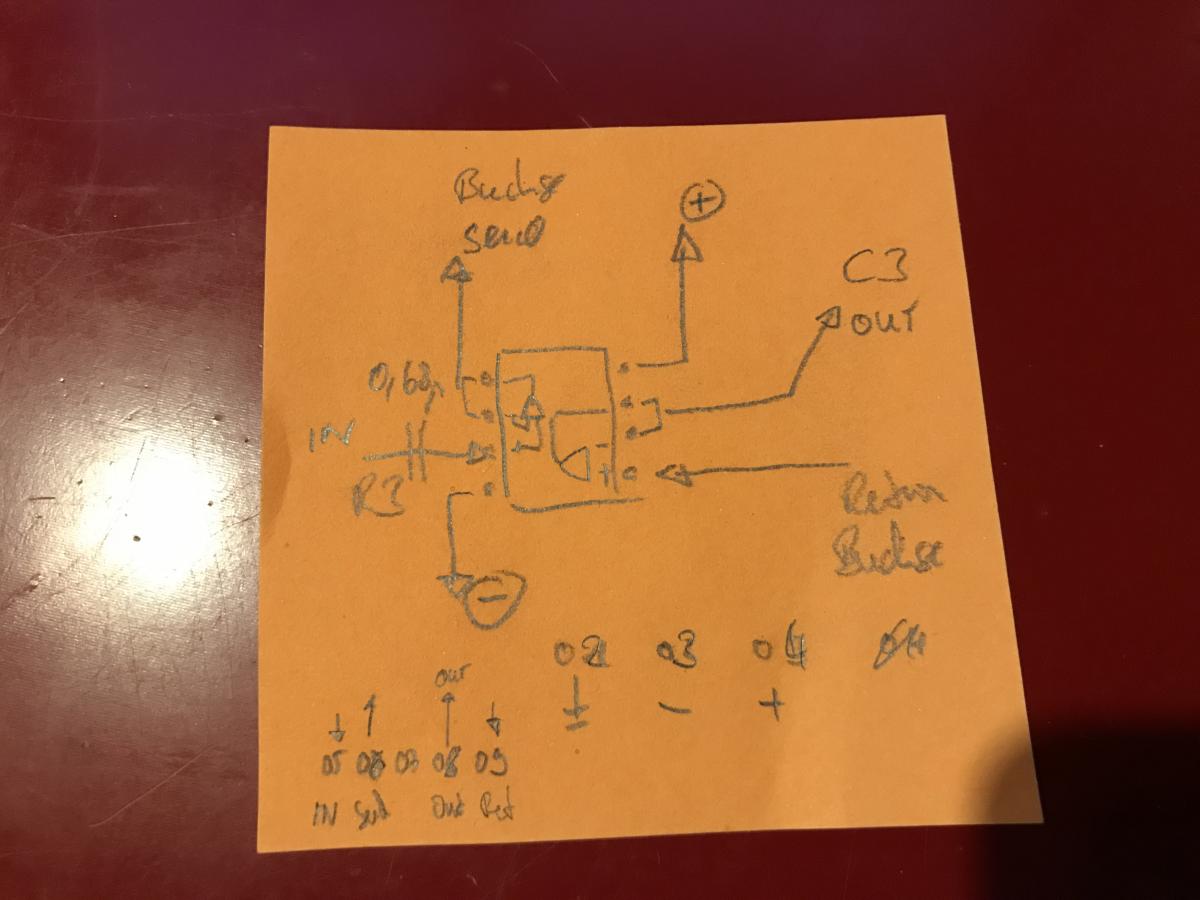 Buchse
Send
+
C3
OUT
0,68µ
IN
R3
-
+
Return
Buchse
-
02 03 04
- +
OUT
05 06 07 08 09
IN Send Out Ret